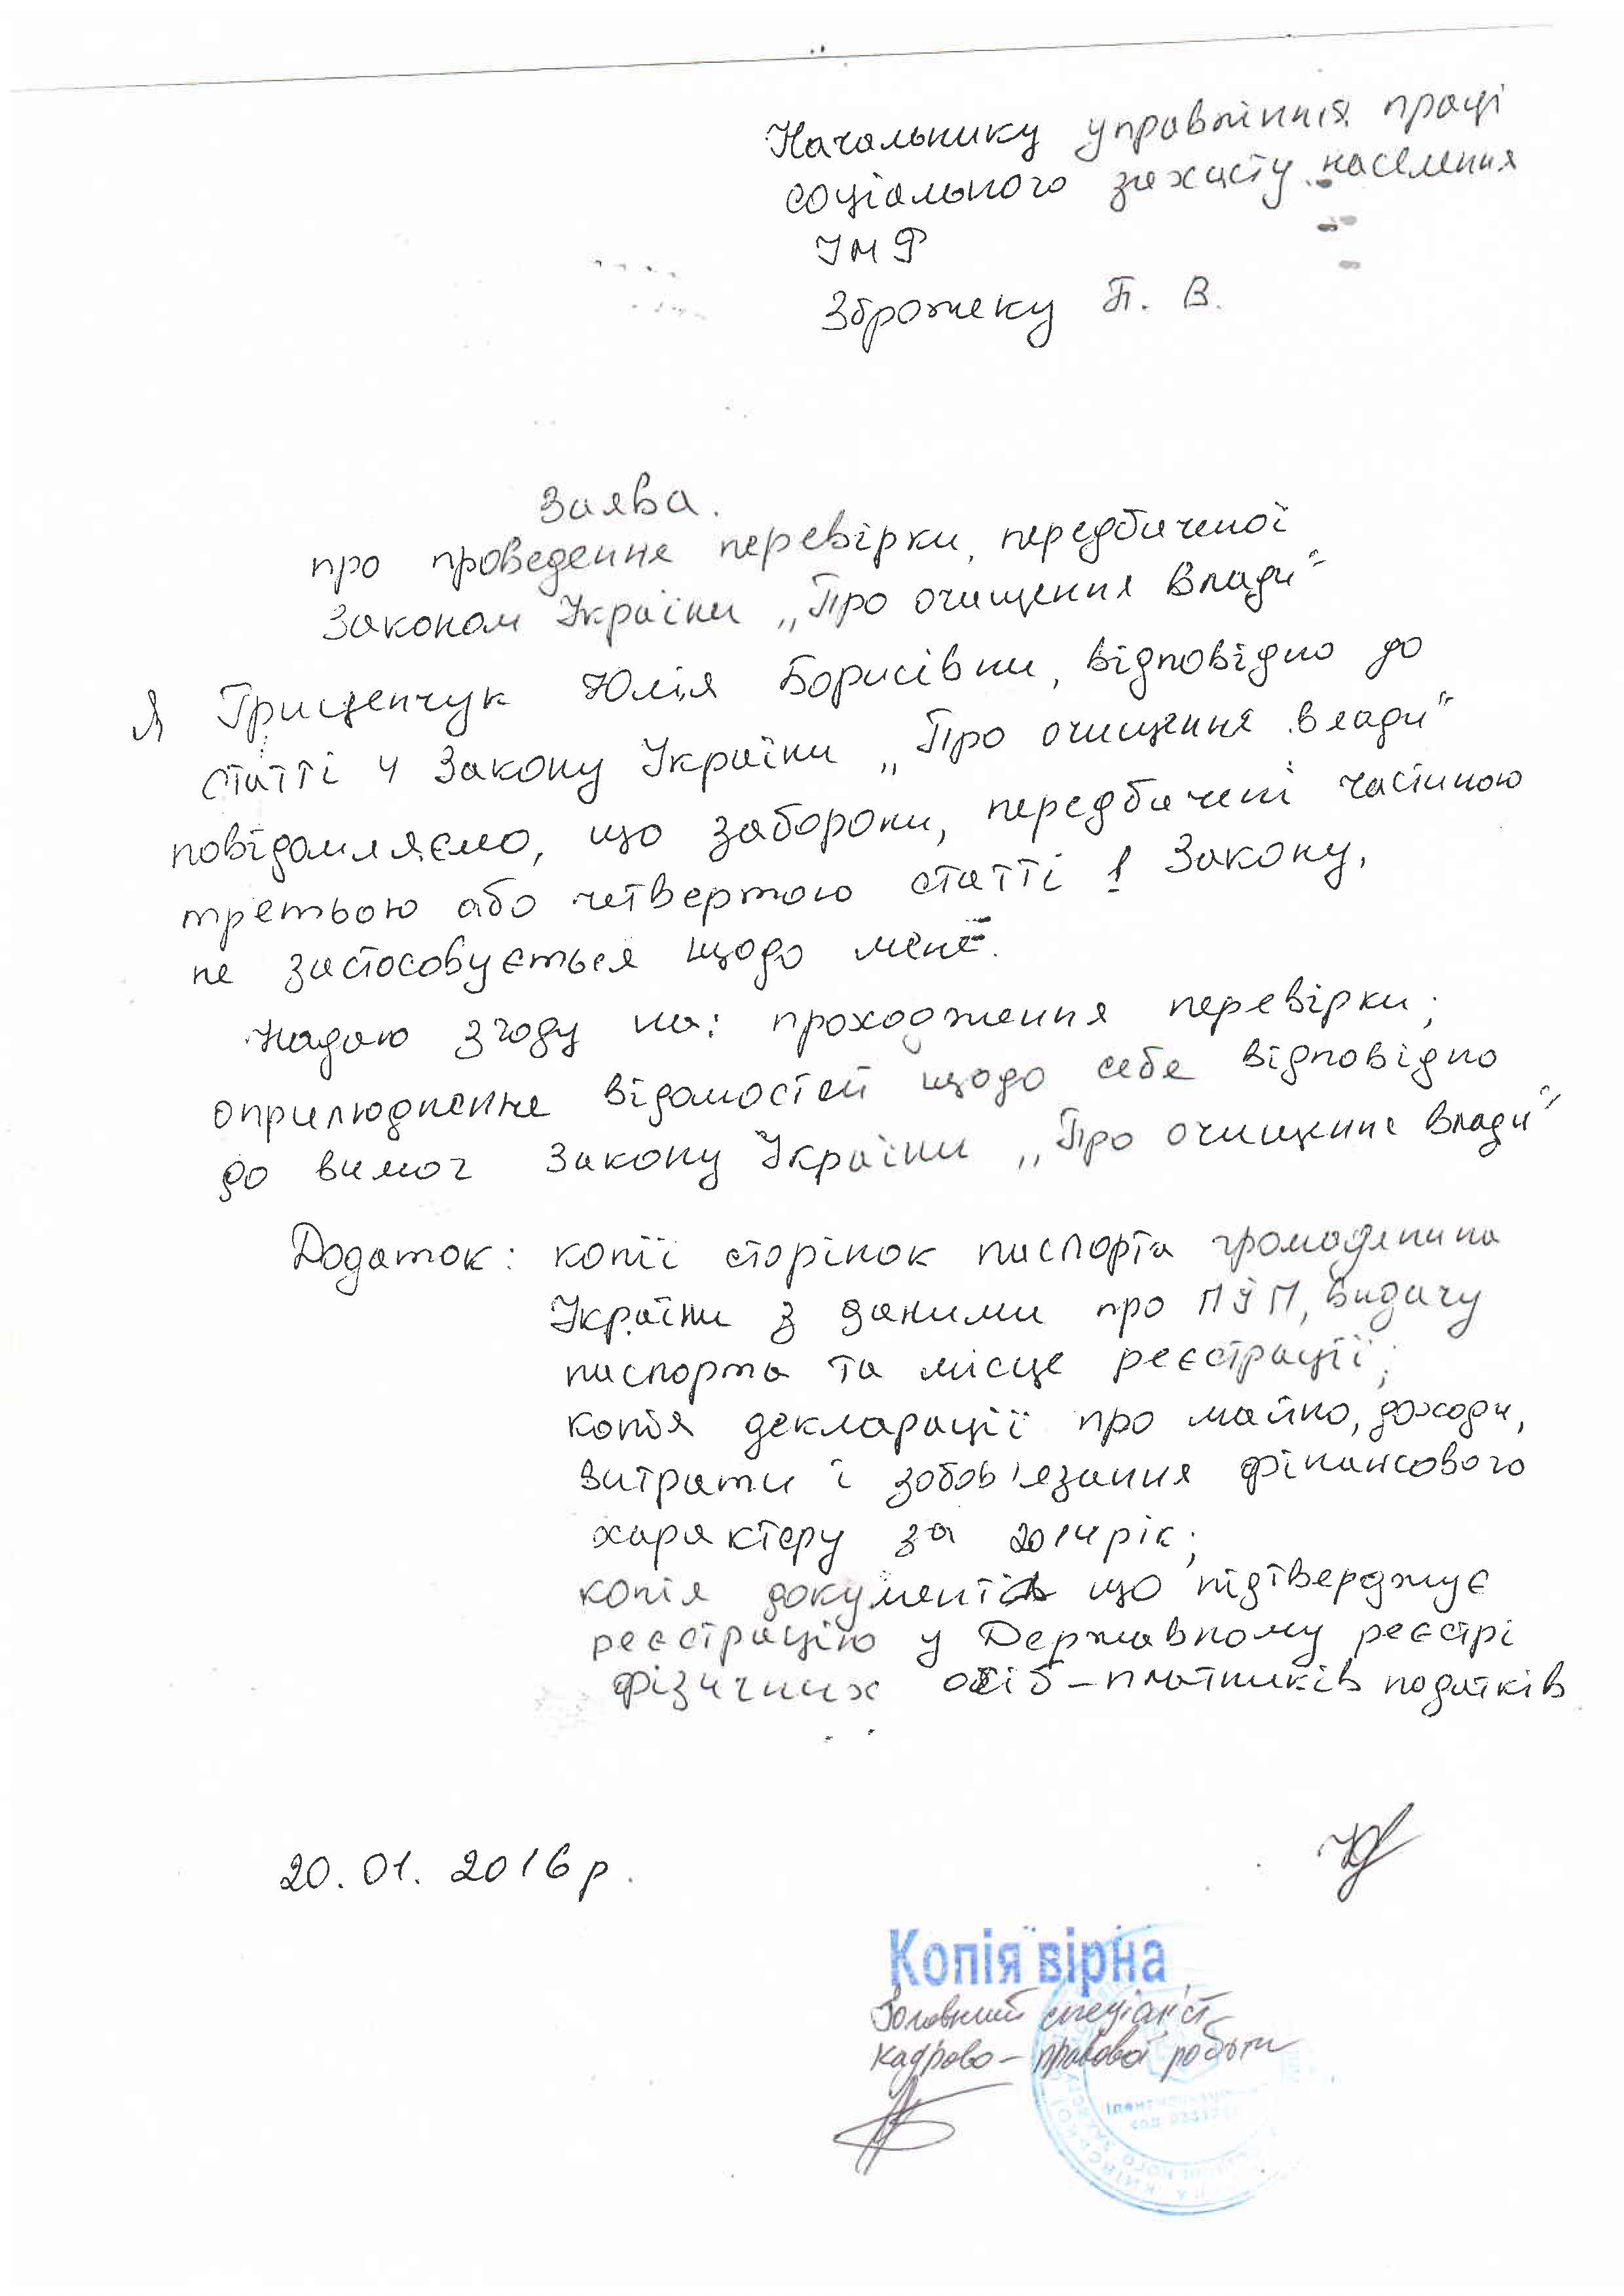 Начальнику управління праці
соціального захисту населення
ІМР
Зброжеку П. В.
Заява.
про проведення перевірки, передбаченої
Законом України „Про очищення влади"
Я Грищенчук Юлія Борисівни, відповідно до
статті 4 Закону України „Про очищення влади"
повідомляємо, що заборони, передбачені частиною
третьою або четвертою статті 1 Закону,
не застосовується щодо мене.
Надаю згоду на: проходження перевірки;
оприлюднення відомостей щодо себе відповідно
до вимог Закону України „Про очищення влади"
Додаток: копії сторінок паспорта громадянина
України з даними про ПІП, видачу
паспорта та місце реєстрації;
копія декларації про майно, доходи,
витрати і зобов'язання фінансового
характеру за 2014 рік;
копія документів що підтверджує
реєстрацію у Державному реєстрі
фізичних осіб – платників податків
20.01.2016 р.
Копія вірна
Головний спеціаліст
кадрово – правової роботи